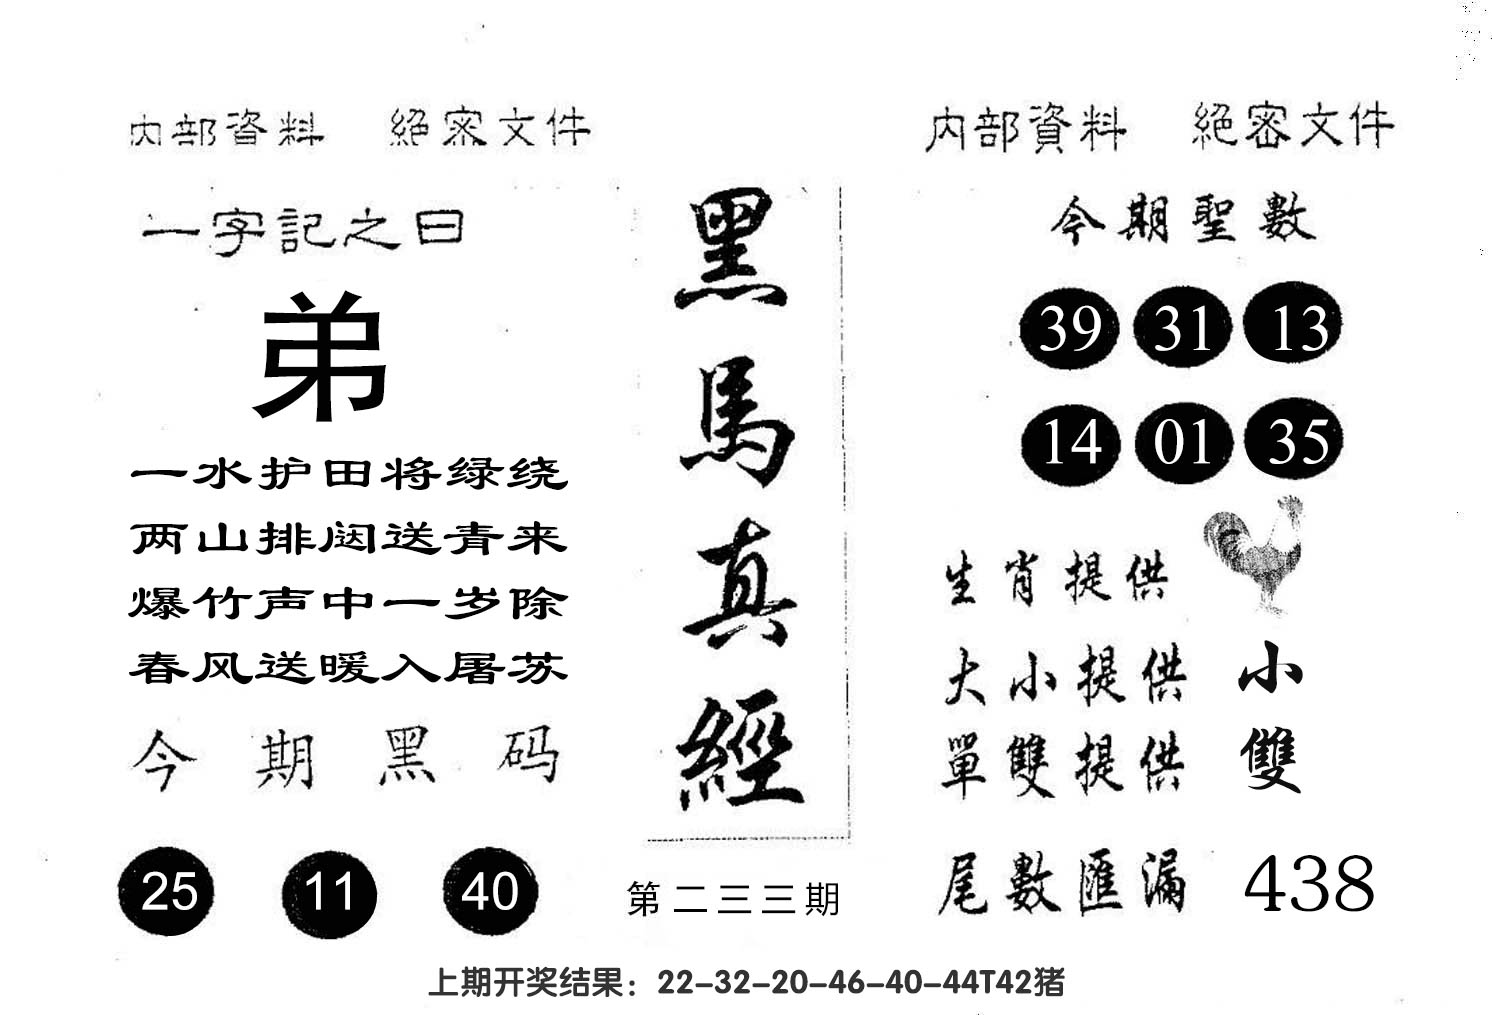 内部資料 絕密文件
一字記之曰
弟
一水护田将绿绕
两山排闼送青来
爆竹声中一岁除
春风送暖入屠苏
今期黑码
25 11 40
黑馬真經
第二三三期
内部資料 絕密文件
今期聖數
39 31 13
14 01 35
生肖提供
大小提供 小
單雙提供 雙
尾數匯漏 438
上期开奖结果：22-32-20-46-40-44T42猪